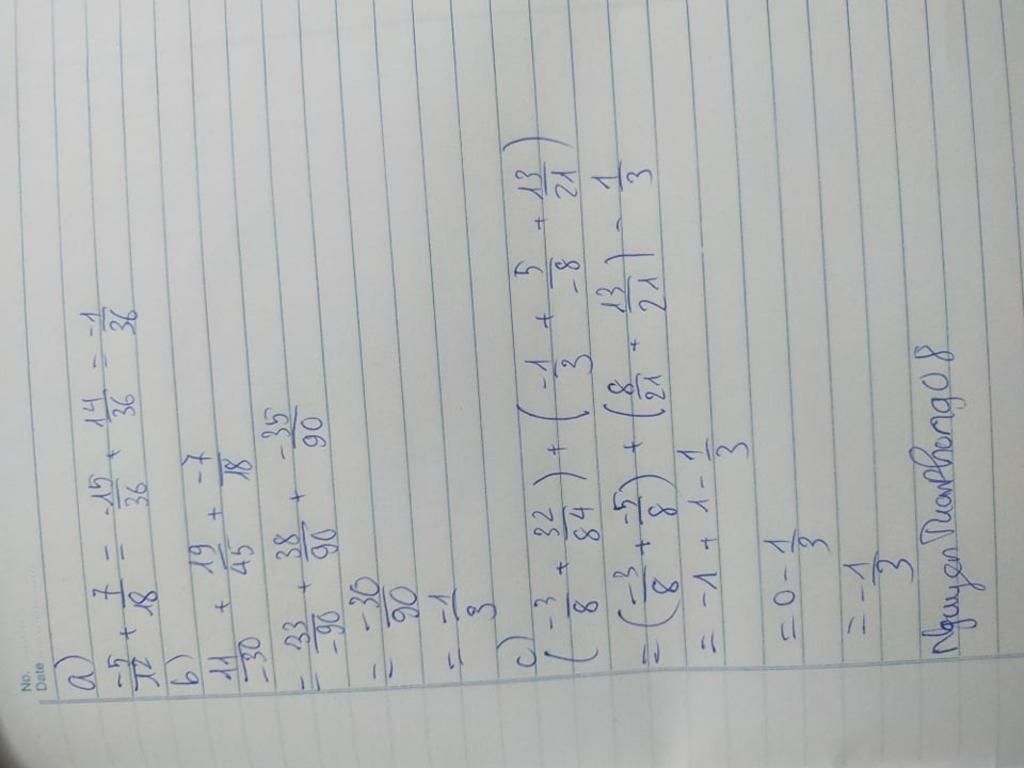 No.
Date
a)
-5/12 + 7/18 = -15/36 + 14/36 = -1/36
b)
11/-30 + 19/45 + -7/18
= 33/-90 + 38/90 + -35/90
= -30/90
= -1/3
c)
(-3/8 + 32/84) + (-1/3 + 5/-8 + 13/21)
= (-3/8 + -5/8) + (8/21 + 13/21) - 1/3
= -1 + 1 - 1/3
= 0 - 1/3
= -1/3
NguyenTuanPhong08